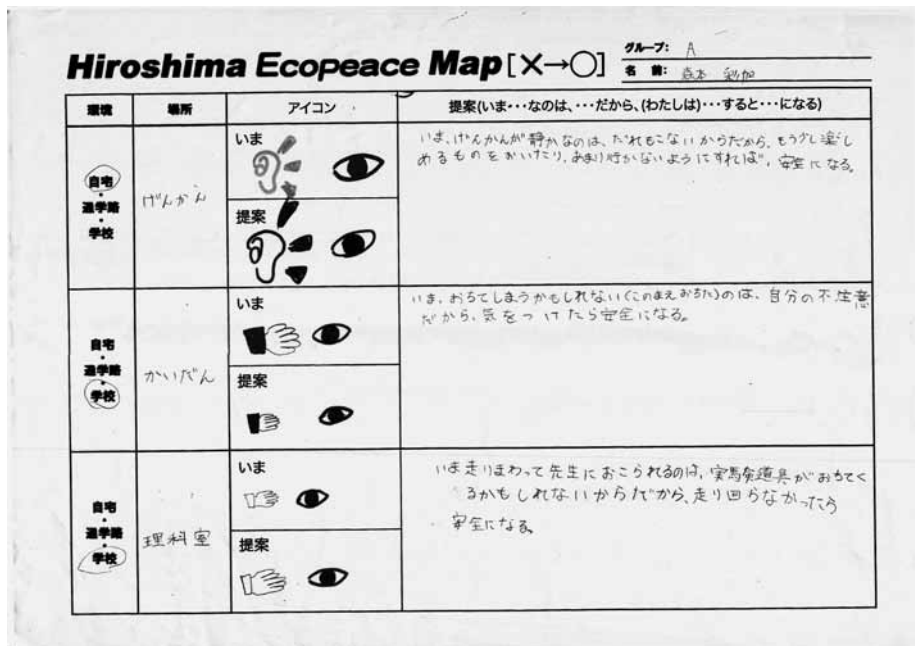 Hiroshima Ecopeace Map[×→○]
グループ: A
名 前: 森本 彩加
環境
場所
アイコン
提案(いま・・・なのは、・・・だから、(わたしは)・・・すると・・・になる)
自宅
・
通学路
・
学校
げんかん
いま
提案
いま、げんかんが静かなのは、だれもこないからだから、もう少し楽し
めるものをおいたり、あまり行かないようにすれば、安全になる。
自宅
・
通学路
・
学校
かいだん
いま
提案
いま、おちてしまうかもしれない(このまえおちた)のは、自分の不注意
だから、気をつけたら安全になる。
自宅
・
通学路
・
学校
理科室
いま
提案
いま走りまわって先生におこられるのは、実験道具がおちてく
るかもしれないからだから、走り回らなかったら
安全になる。